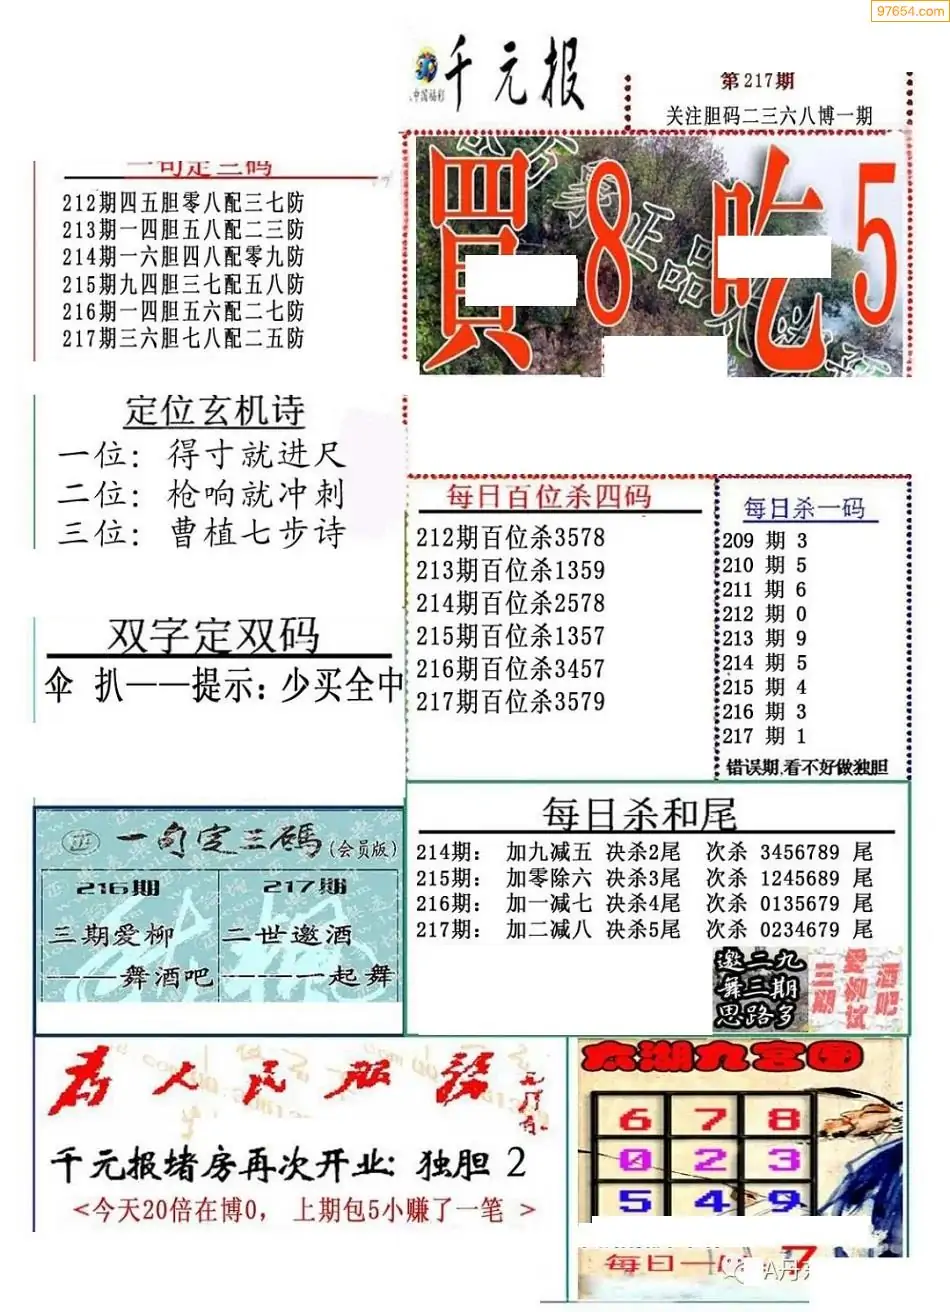 97654.com
千元报
中国福彩
第217期
关注胆码二三六八博一期
買8吃5
一句定三码
212期四五胆零八配三七防
213期一四胆五八配二三防
214期一六胆四八配零九防
215期九四胆三七配五八防
216期一四胆五六配二七防
217期三六胆七八配二五防
定位玄机诗
一位：得寸就进尺
二位：枪响就冲刺
三位：曹植七步诗
双字定双码
伞 扒——提示：少买全中
每日百位杀四码
212期百位杀3578
213期百位杀1359
214期百位杀2578
215期百位杀1357
216期百位杀3457
217期百位杀3579
每日杀一码
209 期 3
210 期 5
211 期 6
212 期 0
213 期 9
214 期 5
215 期 4
216 期 3
217 期 1
错误期,看不好做独胆
一句定三碼(会员版)
216期
三期爱柳
————舞酒吧
217期
二世邀酒
————一起舞
每日杀和尾
214期： 加九减五 决杀2尾 次杀 3456789 尾
215期： 加零除六 决杀3尾 次杀 1245689 尾
216期： 加一减七 决杀4尾 次杀 0135679 尾
217期： 加二减八 决杀5尾 次杀 0234679 尾
邀二九
舞三期
思路多
三期
爱柳试
酒吧
为人民服务
千元报堵房再次开业：独胆 2
<今天20倍在博0， 上期包5小赚了一笔 >
太湖九宫图
6 7 8
0 2 3
5 4 9
每日一
7